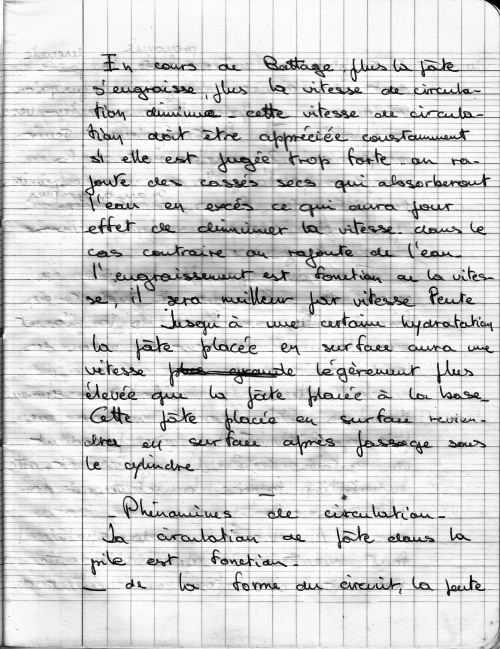 En cours de Battage, plus la pâte
s'engraisse, plus la vitesse de circula-
tion diminue - cette vitesse de circula-
tion doit être appréciée constamment
si elle est jugée trop forte on ra-
joute des cassés secs qui absorberont
l'eau en excés ce qui aura pour
effet de diminuer la vitesse. dans le
cas contraire on rajoute de l'eau.
l'engraissement est fonction de la vites-
se, il sera meilleur par vitesse lente
Jusqu'à une certaine hydratation
la pâte placée en surface aura une
vitesse plus grande légèrement plus
élevée que la pâte placée à la base.
Cette pâte placée en surface revien-
dra en surface après passage sous
le cylindre
- Phénomènes de circulation -
La circulation de pâte dans la
pile est fonction -
- de la forme du circuit, la pente